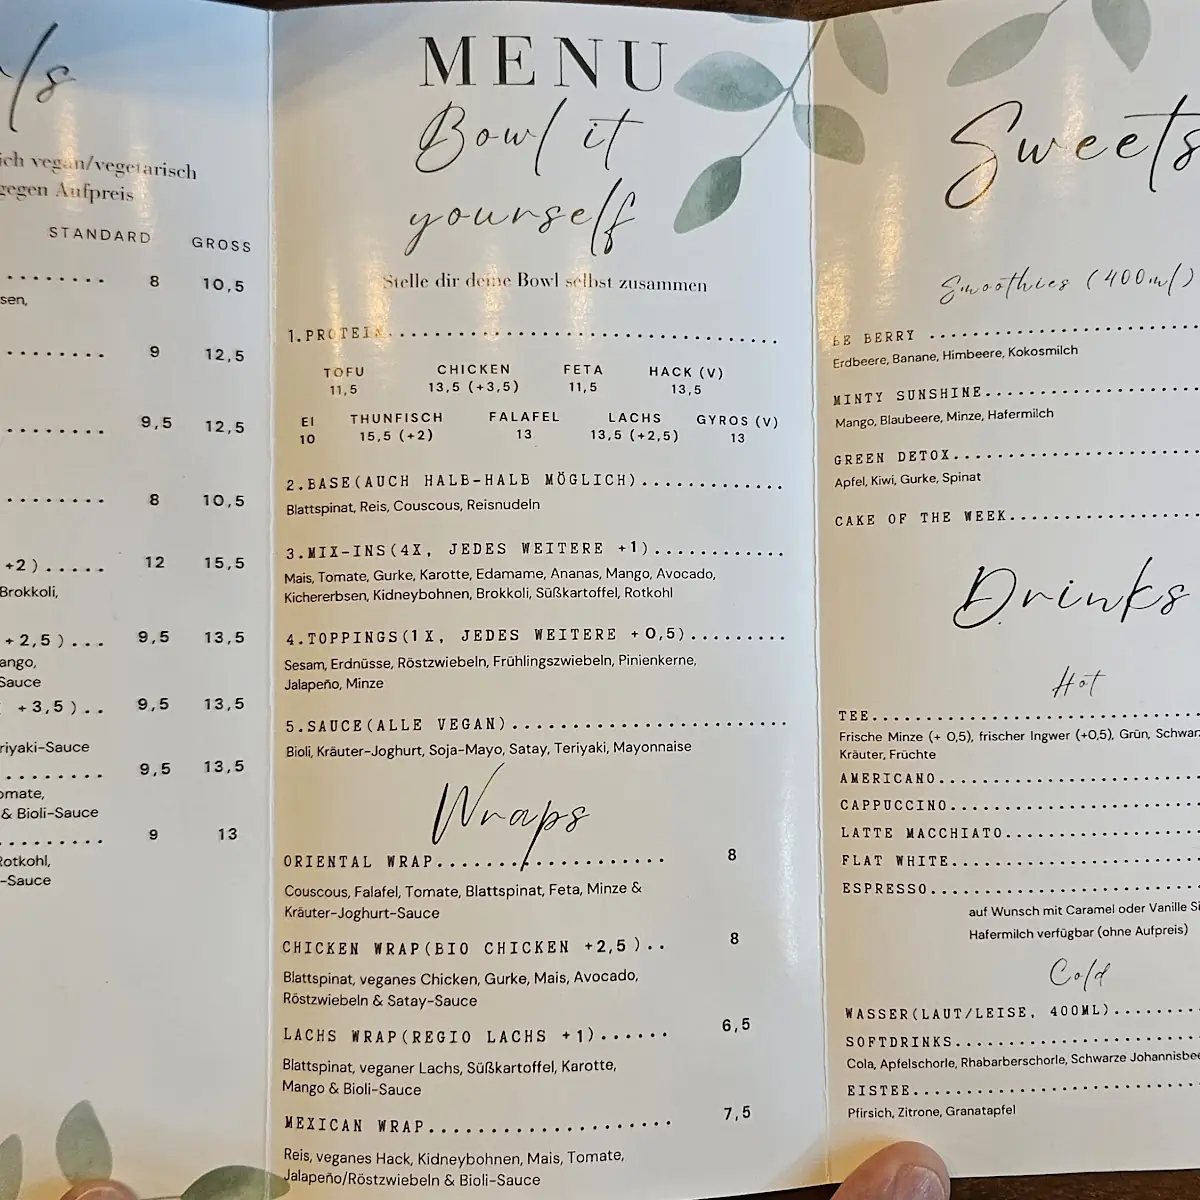 ich vegan/vegetarisch
gegen Aufpreis
STANDARD GROSS
8 10,5
9 12,5
9,5 12,5
8 10,5
+2)..... 12 15,5
Brokkoli,
+2,5)... 9,5 13,5
Sauce
+3,5).. 9,5 13,5
9,5 13,5
& Bioli-Sauce
9 13
-Sauce
MENU
Bowl it
yourself
Stelle dir deine Bowl selbst zusammen
1.PROTEIN
TOFU CHICKEN FETA HACK (V)
11,5 13,5 (+3,5) 11,5 13,5
EI THUNFISCH FALAFEL LACHS GYROS (V)
10 15,5 (+2) 13 13,5 (+2,5) 13
2.BASE(AUCH HALB-HALB MÖGLICH)
Blattspinat, Reis, Couscous, Reisnudeln
3.MIX-INS(4X, JEDES WEITERE +1)
Mais, Tomate, Gurke, Karotte, Edamame, Ananas, Mango, Avocado,
Kichererbsen, Kidneybohnen, Brokkoli, Süßkartoffel, Rotkohl
4.TOPPINGS(1X, JEDES WEITERE +0,5)
Sesam, Erdnüsse, Röstzwiebeln, Frühlingszwiebeln, Pinienkerne,
Jalapeño, Minze
5.SAUCE(ALLE VEGAN)
Bioli, Kräuter-Joghurt, Soja-Mayo, Satay, Teriyaki, Mayonnaise
Wraps
ORIENTAL WRAP 8
Couscous, Falafel, Tomate, Blattspinat, Feta, Minze &
Kräuter-Joghurt-Sauce
CHICKEN WRAP(BIO CHICKEN +2,5).. 8
Blattspinat, veganes Chicken, Gurke, Mais, Avocado,
Röstzwiebeln & Satay-Sauce
LACHS WRAP(REGIO LACHS +1)...... 6,5
Blattspinat, veganer Lachs, Süßkartoffel, Karotte,
Mango & Bioli-Sauce
MEXICAN WRAP 7,5
Reis, veganes Hack, Kidneybohnen, Mais, Tomate,
Jalapeño/Röstzwiebeln & Bioli-Sauce
Sweets
Smoothies (400ml)
BE BERRY
Erdbeere, Banane, Himbeere, Kokosmilch
MINTY SUNSHINE
Mango, Blaubeere, Minze, Hafermilch
GREEN DETOX
Apfel, Kiwi, Gurke, Spinat
CAKE OF THE WEEK
Drinks
Hot
TEE
Frische Minze (+ 0,5), frischer Ingwer (+0,5), Grün, Schwarz
Kräuter, Früchte
AMERICANO
CAPPUCCINO
LATTE MACCHIATO
FLAT WHITE
ESPRESSO
auf Wunsch mit Caramel oder Vanille
Hafermilch verfügbar (ohne Aufpreis)
Cold
WASSER(LAUT/LEISE, 400ML)
SOFTDRINKS
Cola, Apfelschorle, Rhabarberschorle, Schwarze Johannisbee
EISTEE
Pfirsich, Zitrone, Granatapfel